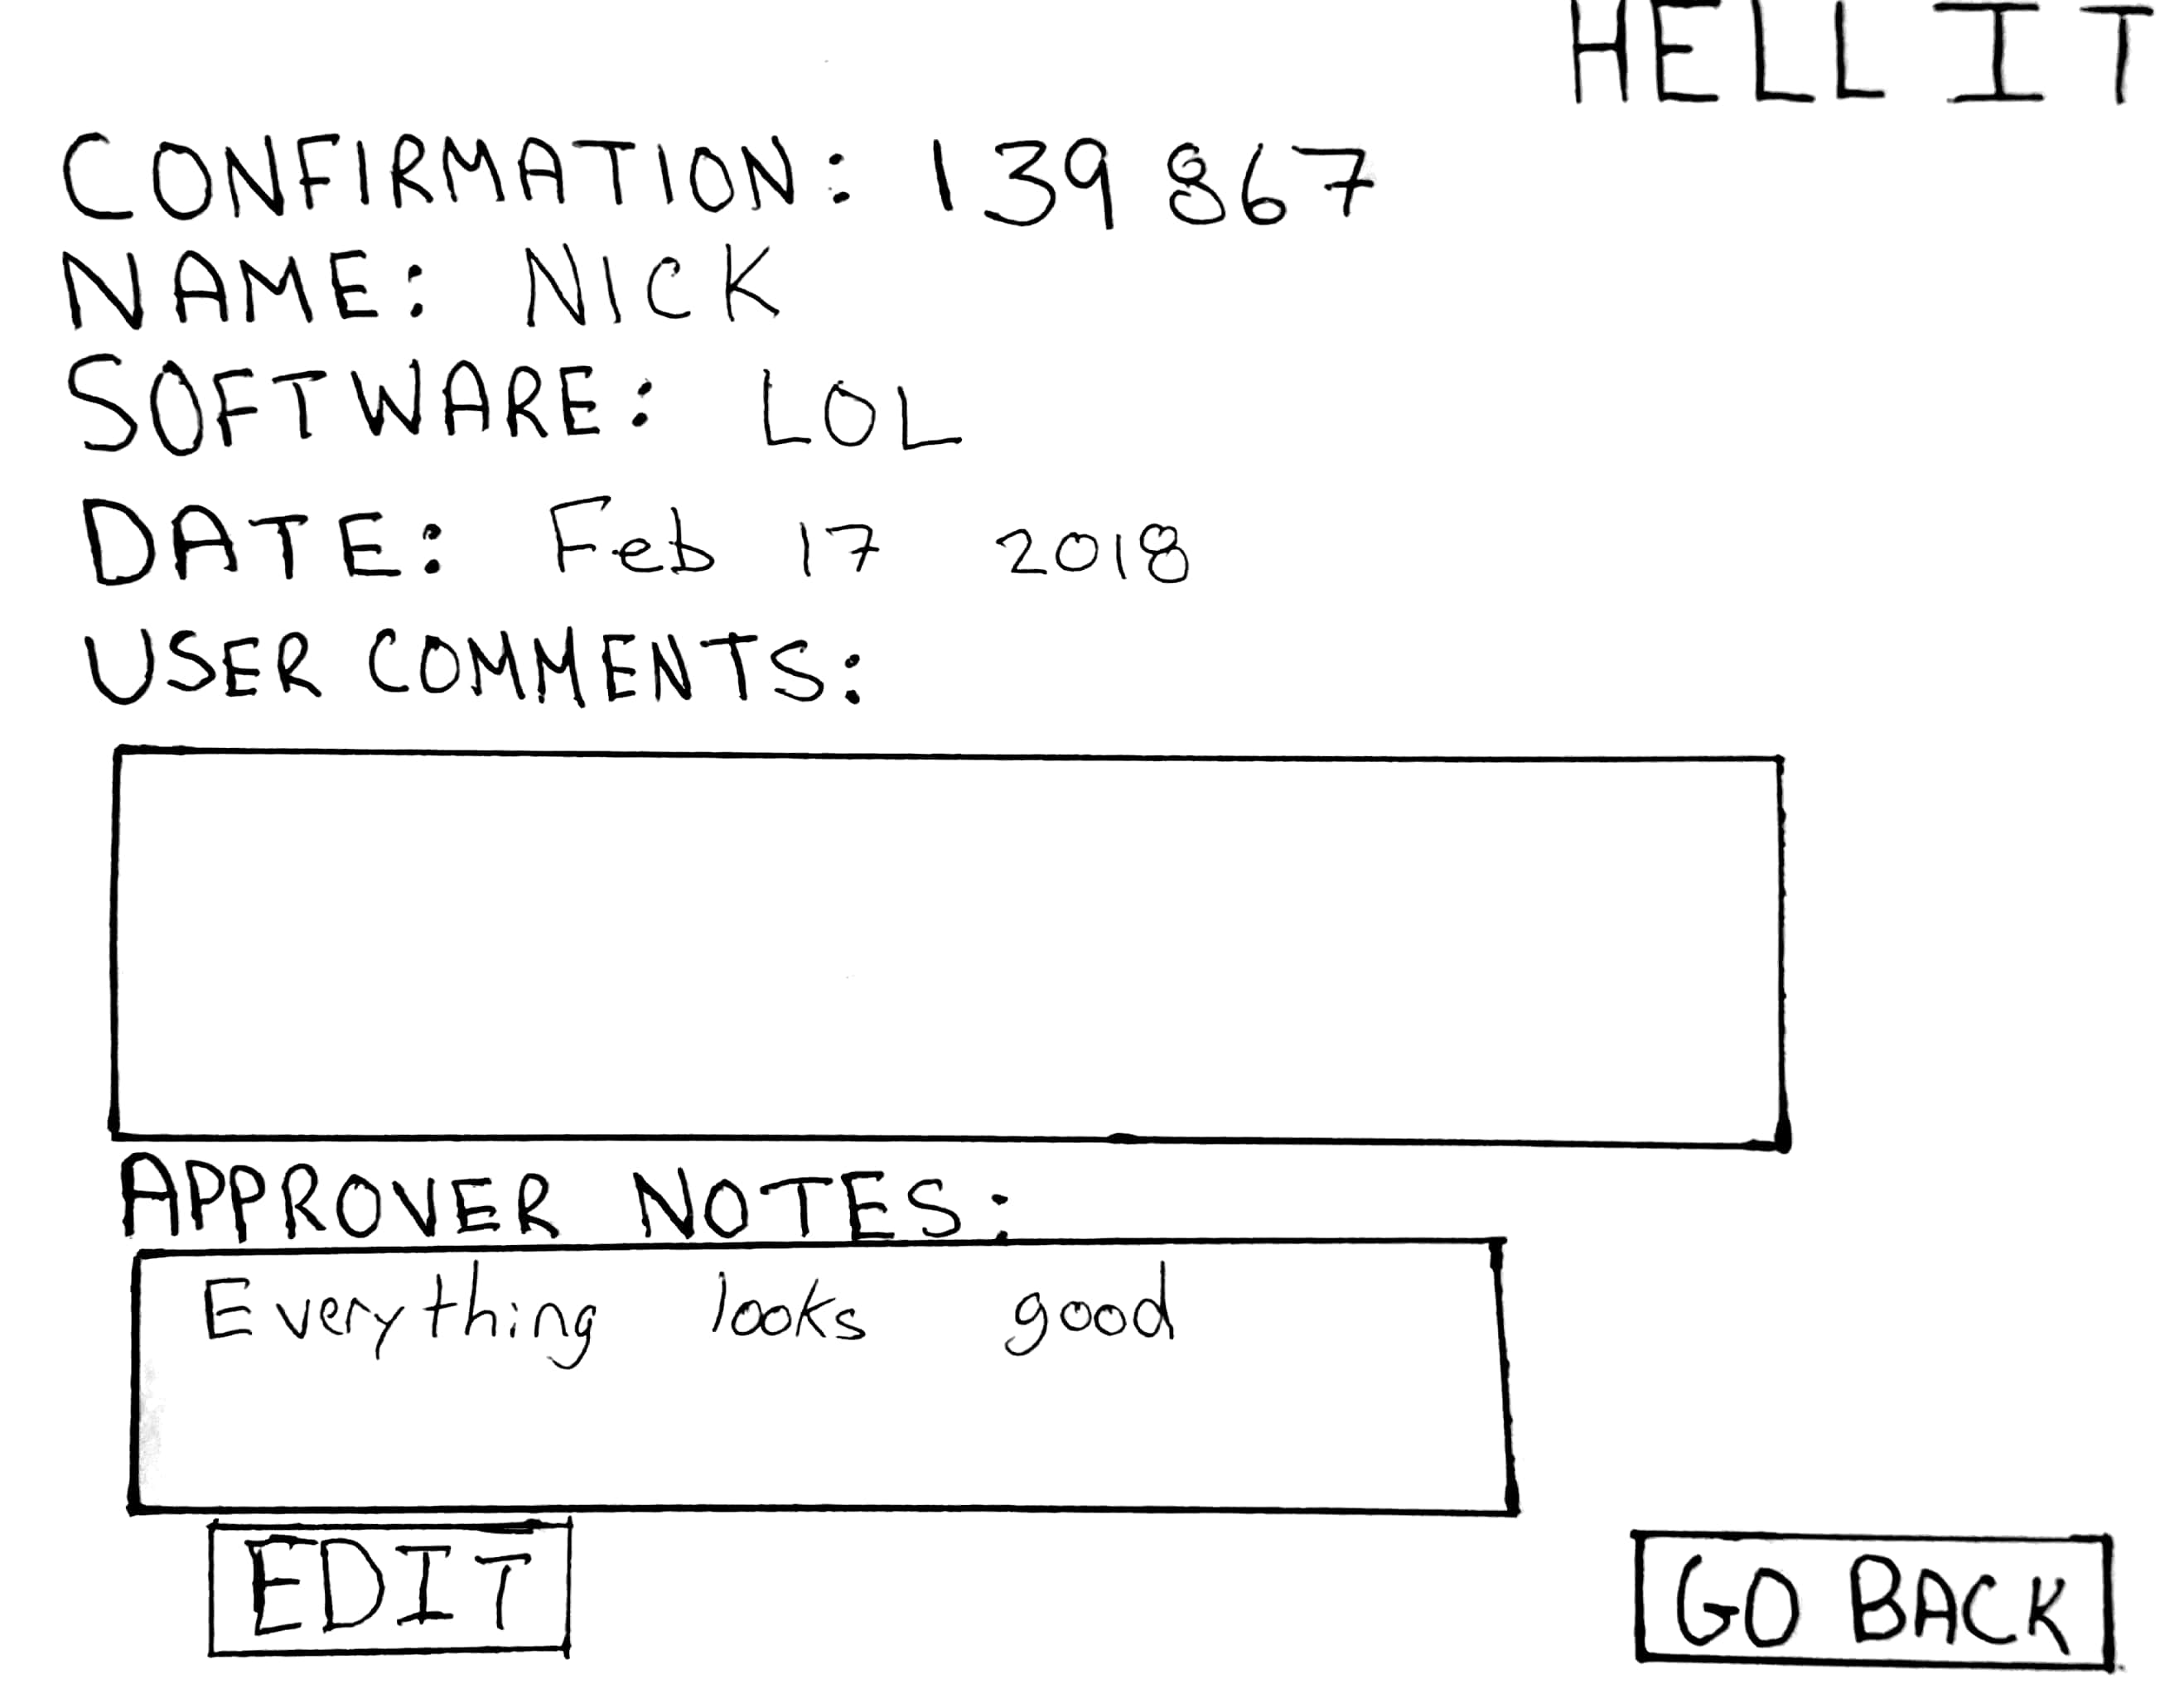 HELL IT
CONFIRMATION: 139867
NAME: NICK
SOFTWARE: LOL
DATE: Feb 17 2018
USER COMMENTS:
APPROVER NOTES:
Everything looks good
EDIT
GO BACK